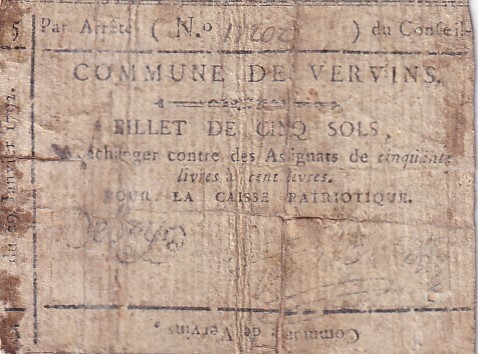 5 Par Arrêté ( N.o ) du Conseil-
COMMUNE DE VERVINS.
BILLET DE CINQ SOLS,
A échanger contre des Assignats de cinquante
livres à cent livres.
POUR LA CAISSE PATRIOTIQUE.
Commune de Vervins,
29 Janvier 1792.